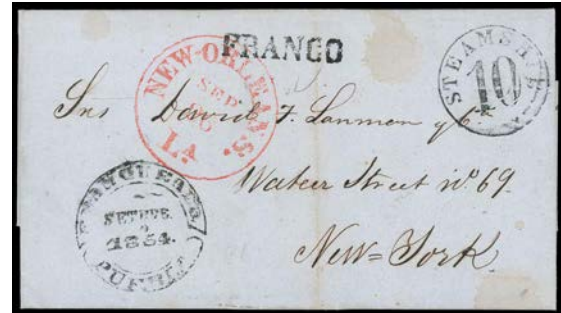 FRANCO
NEW-ORLEANS
SEP
La
STEAMSHIP
10
Sres David F. Lanman y Ca
Water Street No 69.
New-York
FRANQUEADO
SETBRE.
1854.
PUEBLA